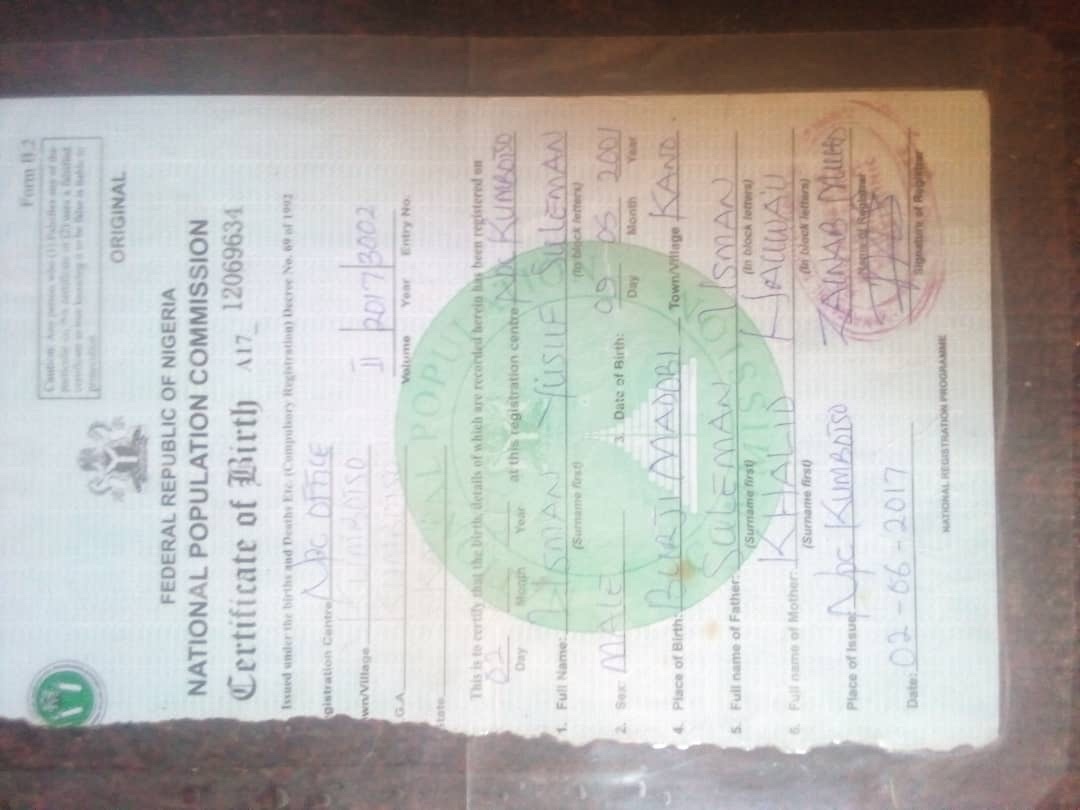 Form B.2
Caution: Any person who (1) falsifies any of the
particular on this certificate or (2) uses a falsified
certificate as true knowing it to be false is liable to
prosecution
ORIGINAL
FEDERAL REPUBLIC OF NIGERIA
NATIONAL POPULATION COMMISSION
Certificate of Birth A17 12069634
Issued under the births and Deaths Etc. (Compulsory Registration) Decree No. 69 of 1992
gistration Centre NPC OFFICE
wn/Village KUMBOTSO II 2017 3002
G.A. Volume Year Entry No.
tate
This is to certify that the birth, details of which are recorded herein has been registered on
02 at this registration centre NPC KUMBOTSO
Day Month Year
1. Full Name: YUSUF SULEMAN
(Surname first) (In block letters)
2. Sex: MALE 3. Date of Birth: 09 05 2001
Day Month Year
4. Place of Birth: Town/Village KANO
5. Full name of Father: SULEMAN USMAN
(Surname first) (In block letters)
6. Full name of Mother: KHALID
(Surname first) (In block letters)
Place of Issue NPC KUMBOTSO ZAINAB
Name of Registrar
Date: 02-06-2017
Signature of Registrar
NATIONAL REGISTRATION PROGRAMME